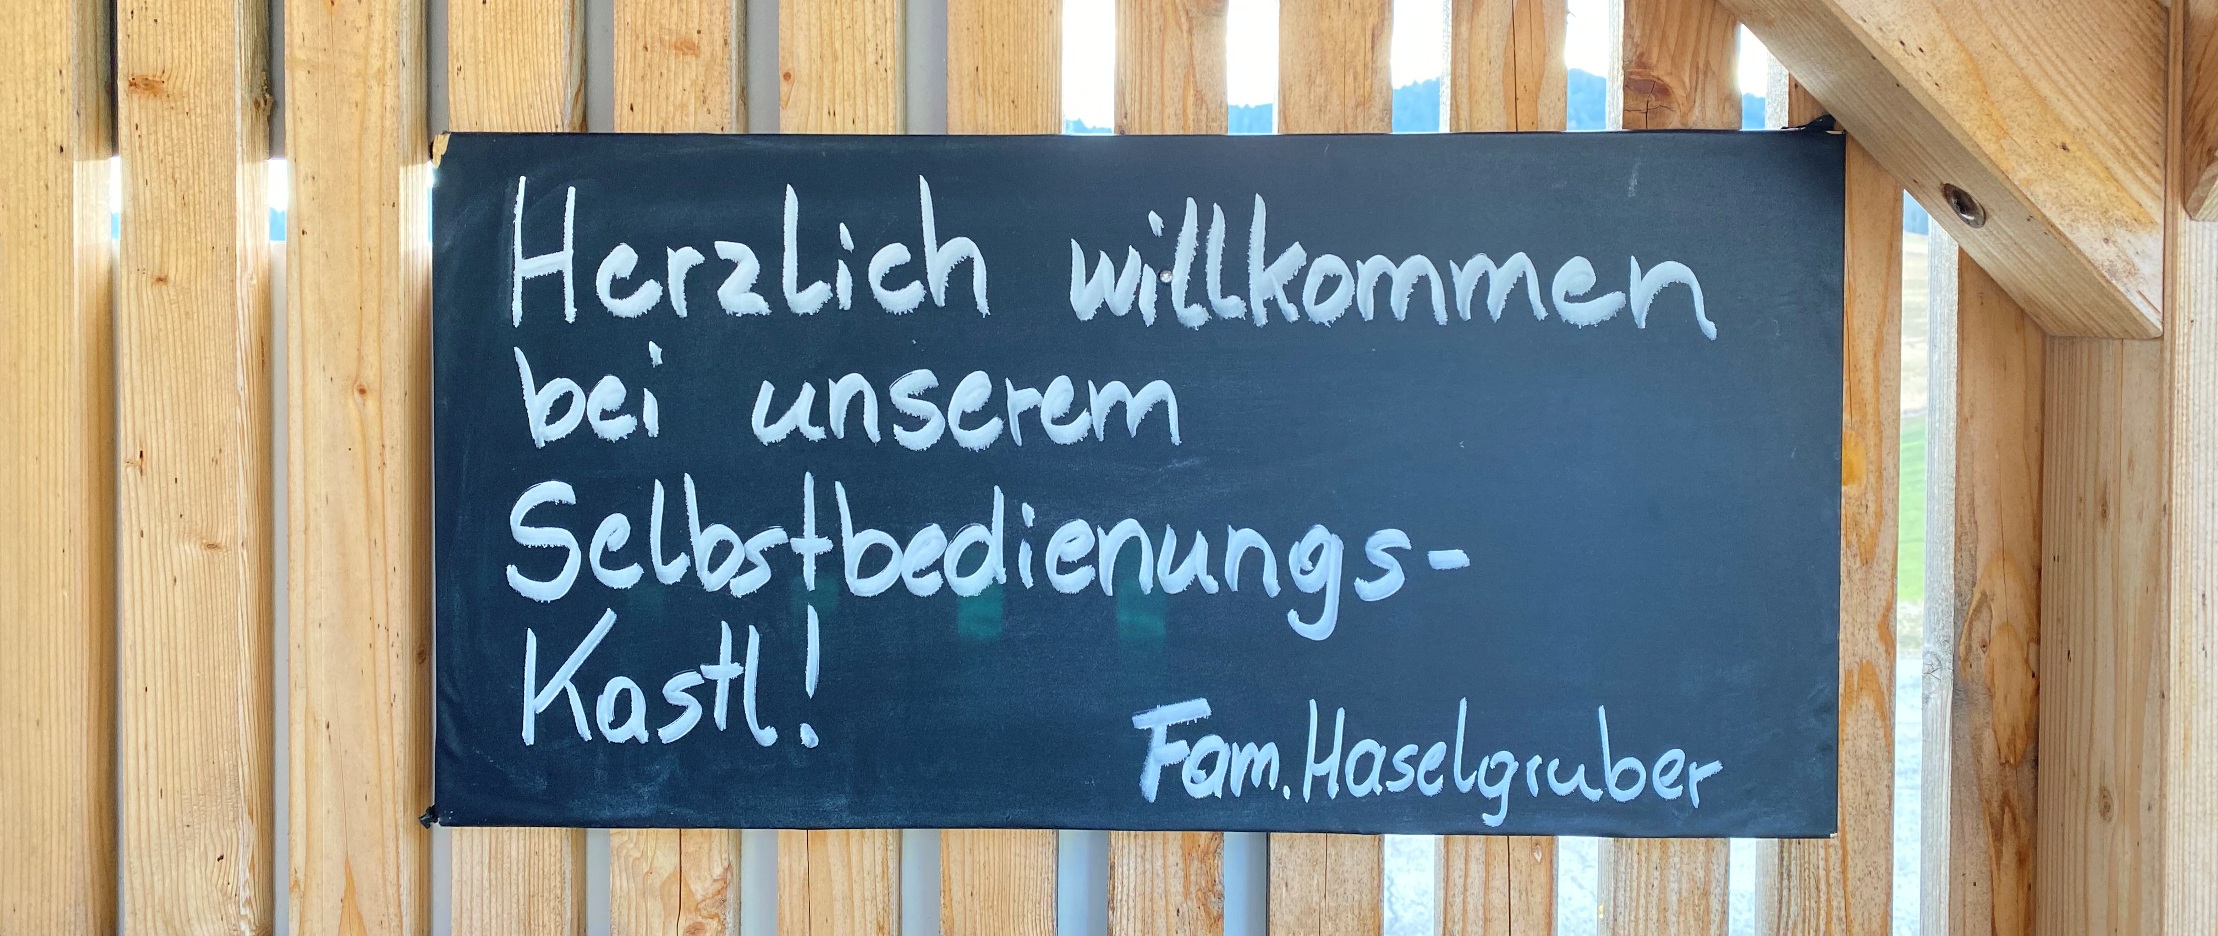 Herzlich willkommen
bei unserem
Selbstbedienungs-
Kastl!
Fam. Haselgruber